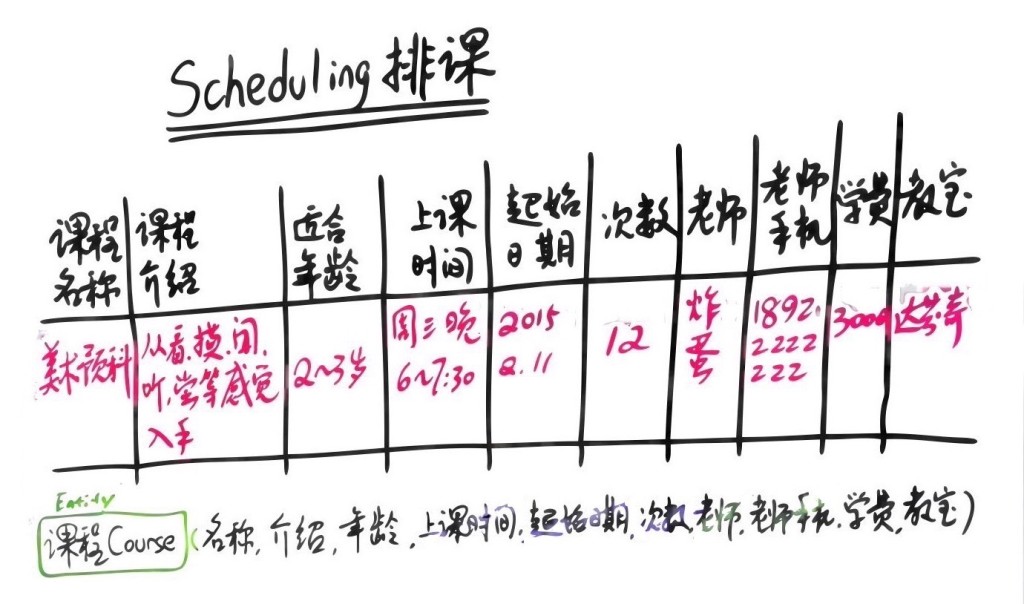 Scheduling 排课
课程
名称
课程
介绍
适合
年龄
上课
时间
起始
日期
次数
老师
老师
手机
学费
教室
美术预科
从看,摸,闻,
听,尝等感觉
入手
2~3岁
周三晚
6~7:30
2015
2.11
12
炸
蛋
1892
2222
222
3000
达芬奇
Entity
课程Course (名称, 介绍, 年龄, 上课时间, 起始日期, 次数, 老师, 老师手机, 学费, 教室)